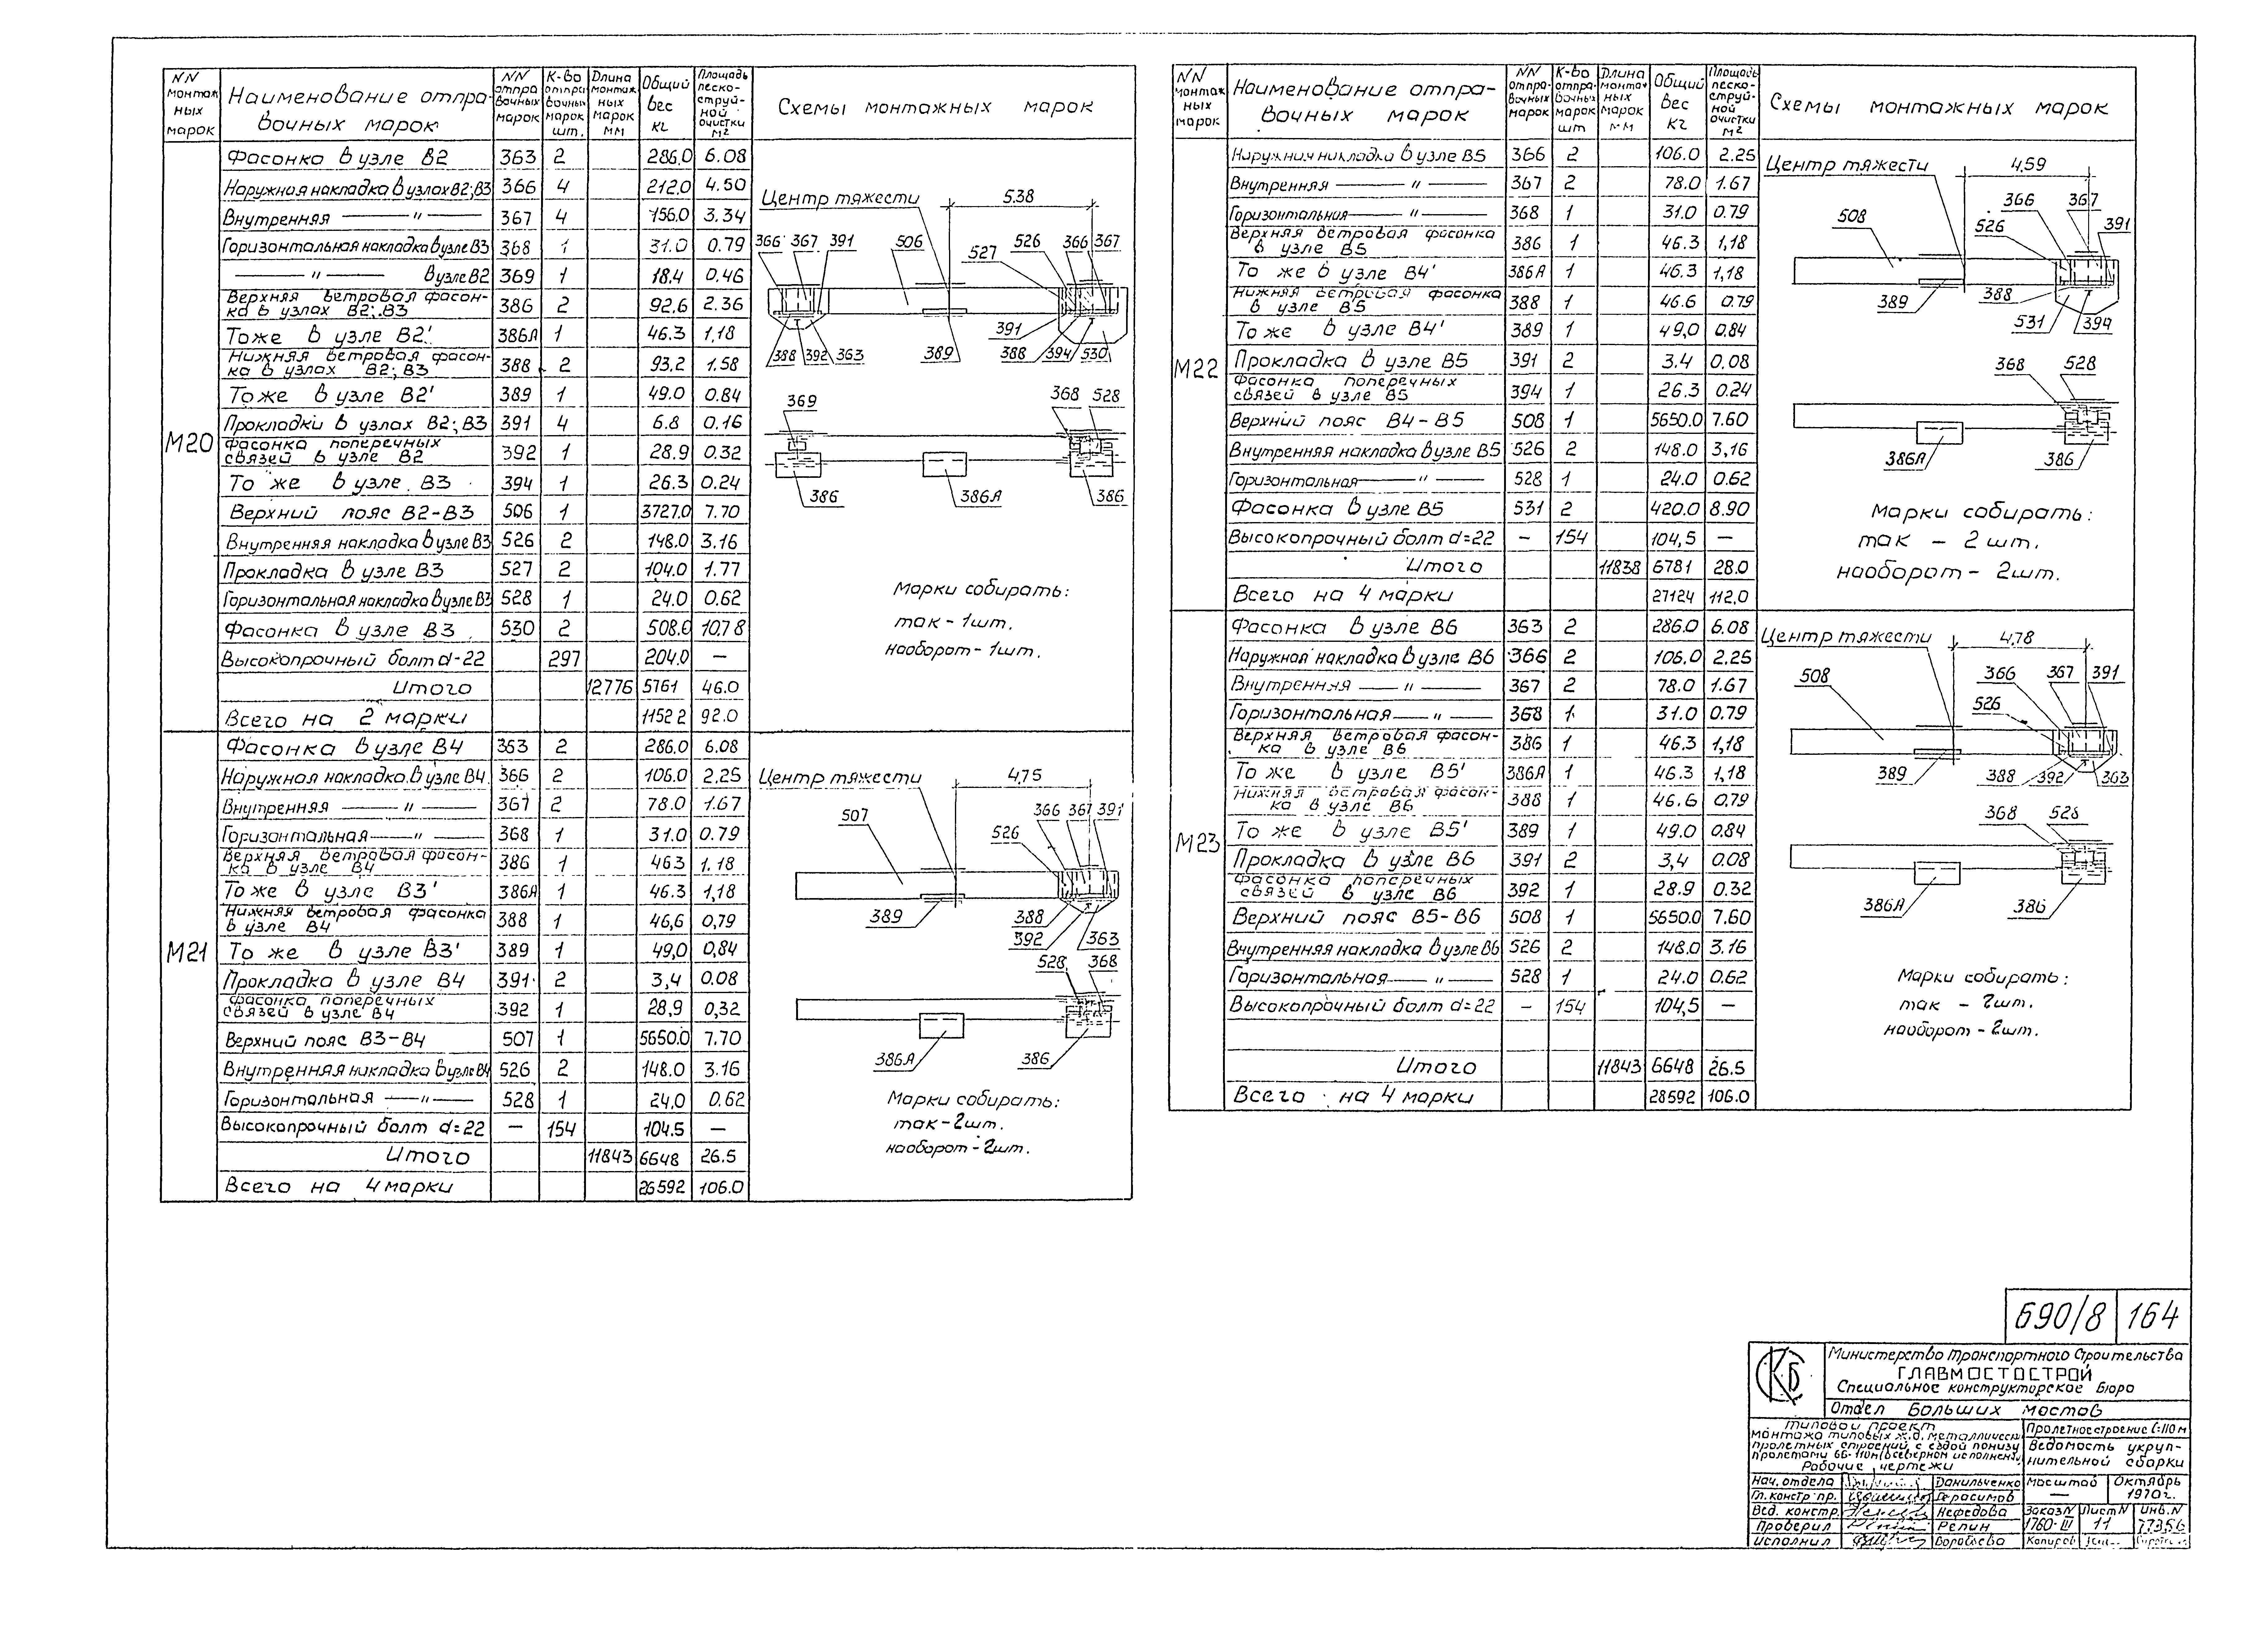 NN монтажных марок | Наименование отправочных марок | NN отправочных марок | К-во отправочных марок шт. | Длина монтажных марок мм | Общий вес кг | Площадь пескоструйной очистки м2 | Схемы монтажных марок
М20
Фасонка в узле В2 363 2 286.0 6.08
Наружная накладка в узлах В2; В3 366 4 212.0 4.50
Внутренняя —〃— 367 4 156.0 3.34
Горизонтальная накладка в узле В3 368 1 31.0 0.79
—〃— в узле В2 369 1 18.4 0.46
Верхняя ветровая фасонка в узлах В2; В3 386 2 92.6 2.36
То же в узле В2' 386А 1 46.3 1,18
Нижняя ветровая фасонка в узлах В2; В3 388 2 93,2 1.58
То же в узле В2' 389 1 49.0 0.84
Прокладки в узлах В2; В3 391 4 6.8 0.16
Фасонка поперечных связей в узле В2 392 1 28.9 0.32
То же в узле В3 394 1 26.3 0.24
Верхний пояс В2-В3 506 1 3727.0 7.70
Внутренняя накладка в узле В3 526 2 148.0 3.16
Прокладка в узле В3 527 2 104.0 1.77
Горизонтальная накладка в узле В3 528 1 24.0 0.62
Фасонка в узле В3 530 2 508.0 10.78
Высокопрочный болт d-22 297 204.0 —
Итого 12776 5761 46.0
Всего на 2 марки 11522 92.0
Центр тяжести 5.38
366 367 391 506 527 526 366 367
391
388 392 363 389 388 394 530
369 368 528
386 386А 386
Марки собирать:
так - 1шт.
наоборот - 1шт.
М21
Фасонка в узле В4 363 2 286.0 6.08
Наружная накладка в узле В4 366 2 106.0 2.25
Внутренняя —〃— 367 2 78.0 1.67
Горизонтальная —〃— 368 1 31.0 0.79
Верхняя ветровая фасонка в узле В4 386 1 46.3 1.18
То же в узле В3' 386А 1 46.3 1,18
Нижняя ветровая фасонка в узле В4 388 1 46,6 0,79
То же в узле В3' 389 1 49,0 0,84
Прокладка в узле В4 391 2 3,4 0.08
Фасонка поперечных связей в узле В4 392 1 28,9 0,32
Верхний пояс В3-В4 507 1 5650.0 7.70
Внутренняя накладка в узле В4 526 2 148.0 3.16
Горизонтальная —〃— 528 1 24,0 0.62
Высокопрочный болт d=22 — 154 104.5 —
Итого 11843 6648 26.5
Всего на 4 марки 26592 106.0
Центр тяжести 4,75
507 526 366 367 391
389 388
392 363
528 368
386А 386
Марки собирать:
так - 2шт.
наоборот - 2шт.
NN монтажных марок | Наименование отправочных марок | NN отправочных марок | К-во отправочных марок шт | Длина монтажных марок мм | Общий вес кг | Площадь пескоструйной очистки м2 | Схемы монтажных марок
М22
Наружная накладка в узле В5 366 2 106.0 2.25
Внутренняя —〃— 367 2 78.0 1.67
Горизонтальная —〃— 368 1 31.0 0.79
Верхняя ветровая фасонка в узле В5 386 1 46.3 1,18
То же в узле В4' 386А 1 46.3 1,18
Нижняя ветровая фасонка в узле В5 388 1 46.6 0.79
То же в узле В4' 389 1 49,0 0.84
Прокладка в узле В5 391 2 3.4 0.08
Фасонка поперечных связей в узле В5 394 1 26.3 0.24
Верхний пояс В4-В5 508 1 5650.0 7.60
Внутренняя накладка в узле В5 526 2 148.0 3,16
Горизонтальная —〃— 528 1 24.0 0.62
Фасонка в узле В5 531 2 420.0 8.90
Высокопрочный болт d=22 — 154 104,5 —
Итого 11838 6781 28.0
Всего на 4 марки 27124 112,0
Центр тяжести 4,59
508 366 367
526 391
389 388
531 394
368 528
386А 386
Марки собирать:
так - 2 шт.
наоборот - 2шт.
М23
Фасонка в узле В6 363 2 286.0 6.08
Наружная накладка в узле В6 366 2 106.0 2.25
Внутренняя —〃— 367 2 78.0 1.67
Горизонтальная —〃— 368 1 31.0 0.79
Верхняя ветровая фасонка в узле В6 386 1 46.3 1,18
То же в узле В5' 386А 1 46.3 1,18
Нижняя ветровая фасонка в узле В6 388 1 46.6 0.79
То же в узле В5' 389 1 49.0 0.84
Прокладка в узле В6 391 2 3,4 0.08
Фасонка поперечных связей в узле В6 392 1 28.9 0.32
Верхний пояс В5-В6 508 1 5650.0 7.60
Внутренняя накладка в узле В6 526 2 148.0 3.16
Горизонтальная —〃— 528 1 24.0 0.62
Высокопрочный болт d=22 — 154 104,5 —
Итого 11843 6648 26.5
Всего на 4 марки 28592 106.0
Центр тяжести 4,78
508 366 367 391
526
389 388 392 363
368 528
386А 386
Марки собирать:
так - 2шт.
наоборот - 2шт.
690/8 164
СКБ
Министерство Транспортного Строительства
ГЛАВМОСТОСТРОЙ
Специальное конструкторское Бюро
Отдел Больших мостов
Типовой проект
монтажа типовых ж.д. металлических
пролетных строений с ездой понизу
пролетами 66-110м (в северном исполнении)
Рабочие чертежи
Пролетное строение l=110 м
Ведомость укрупнительной сборки
Нач. отдела Данильченко
Гл. констр. пр. Герасимов
Вед. констр. Нефедова
Проверил Репин
Исполнил Воробьева
Масштаб — Октябрь 1970г.
Заказ N 1760-III Лист N 11 Инв. N 77356
Копиров.